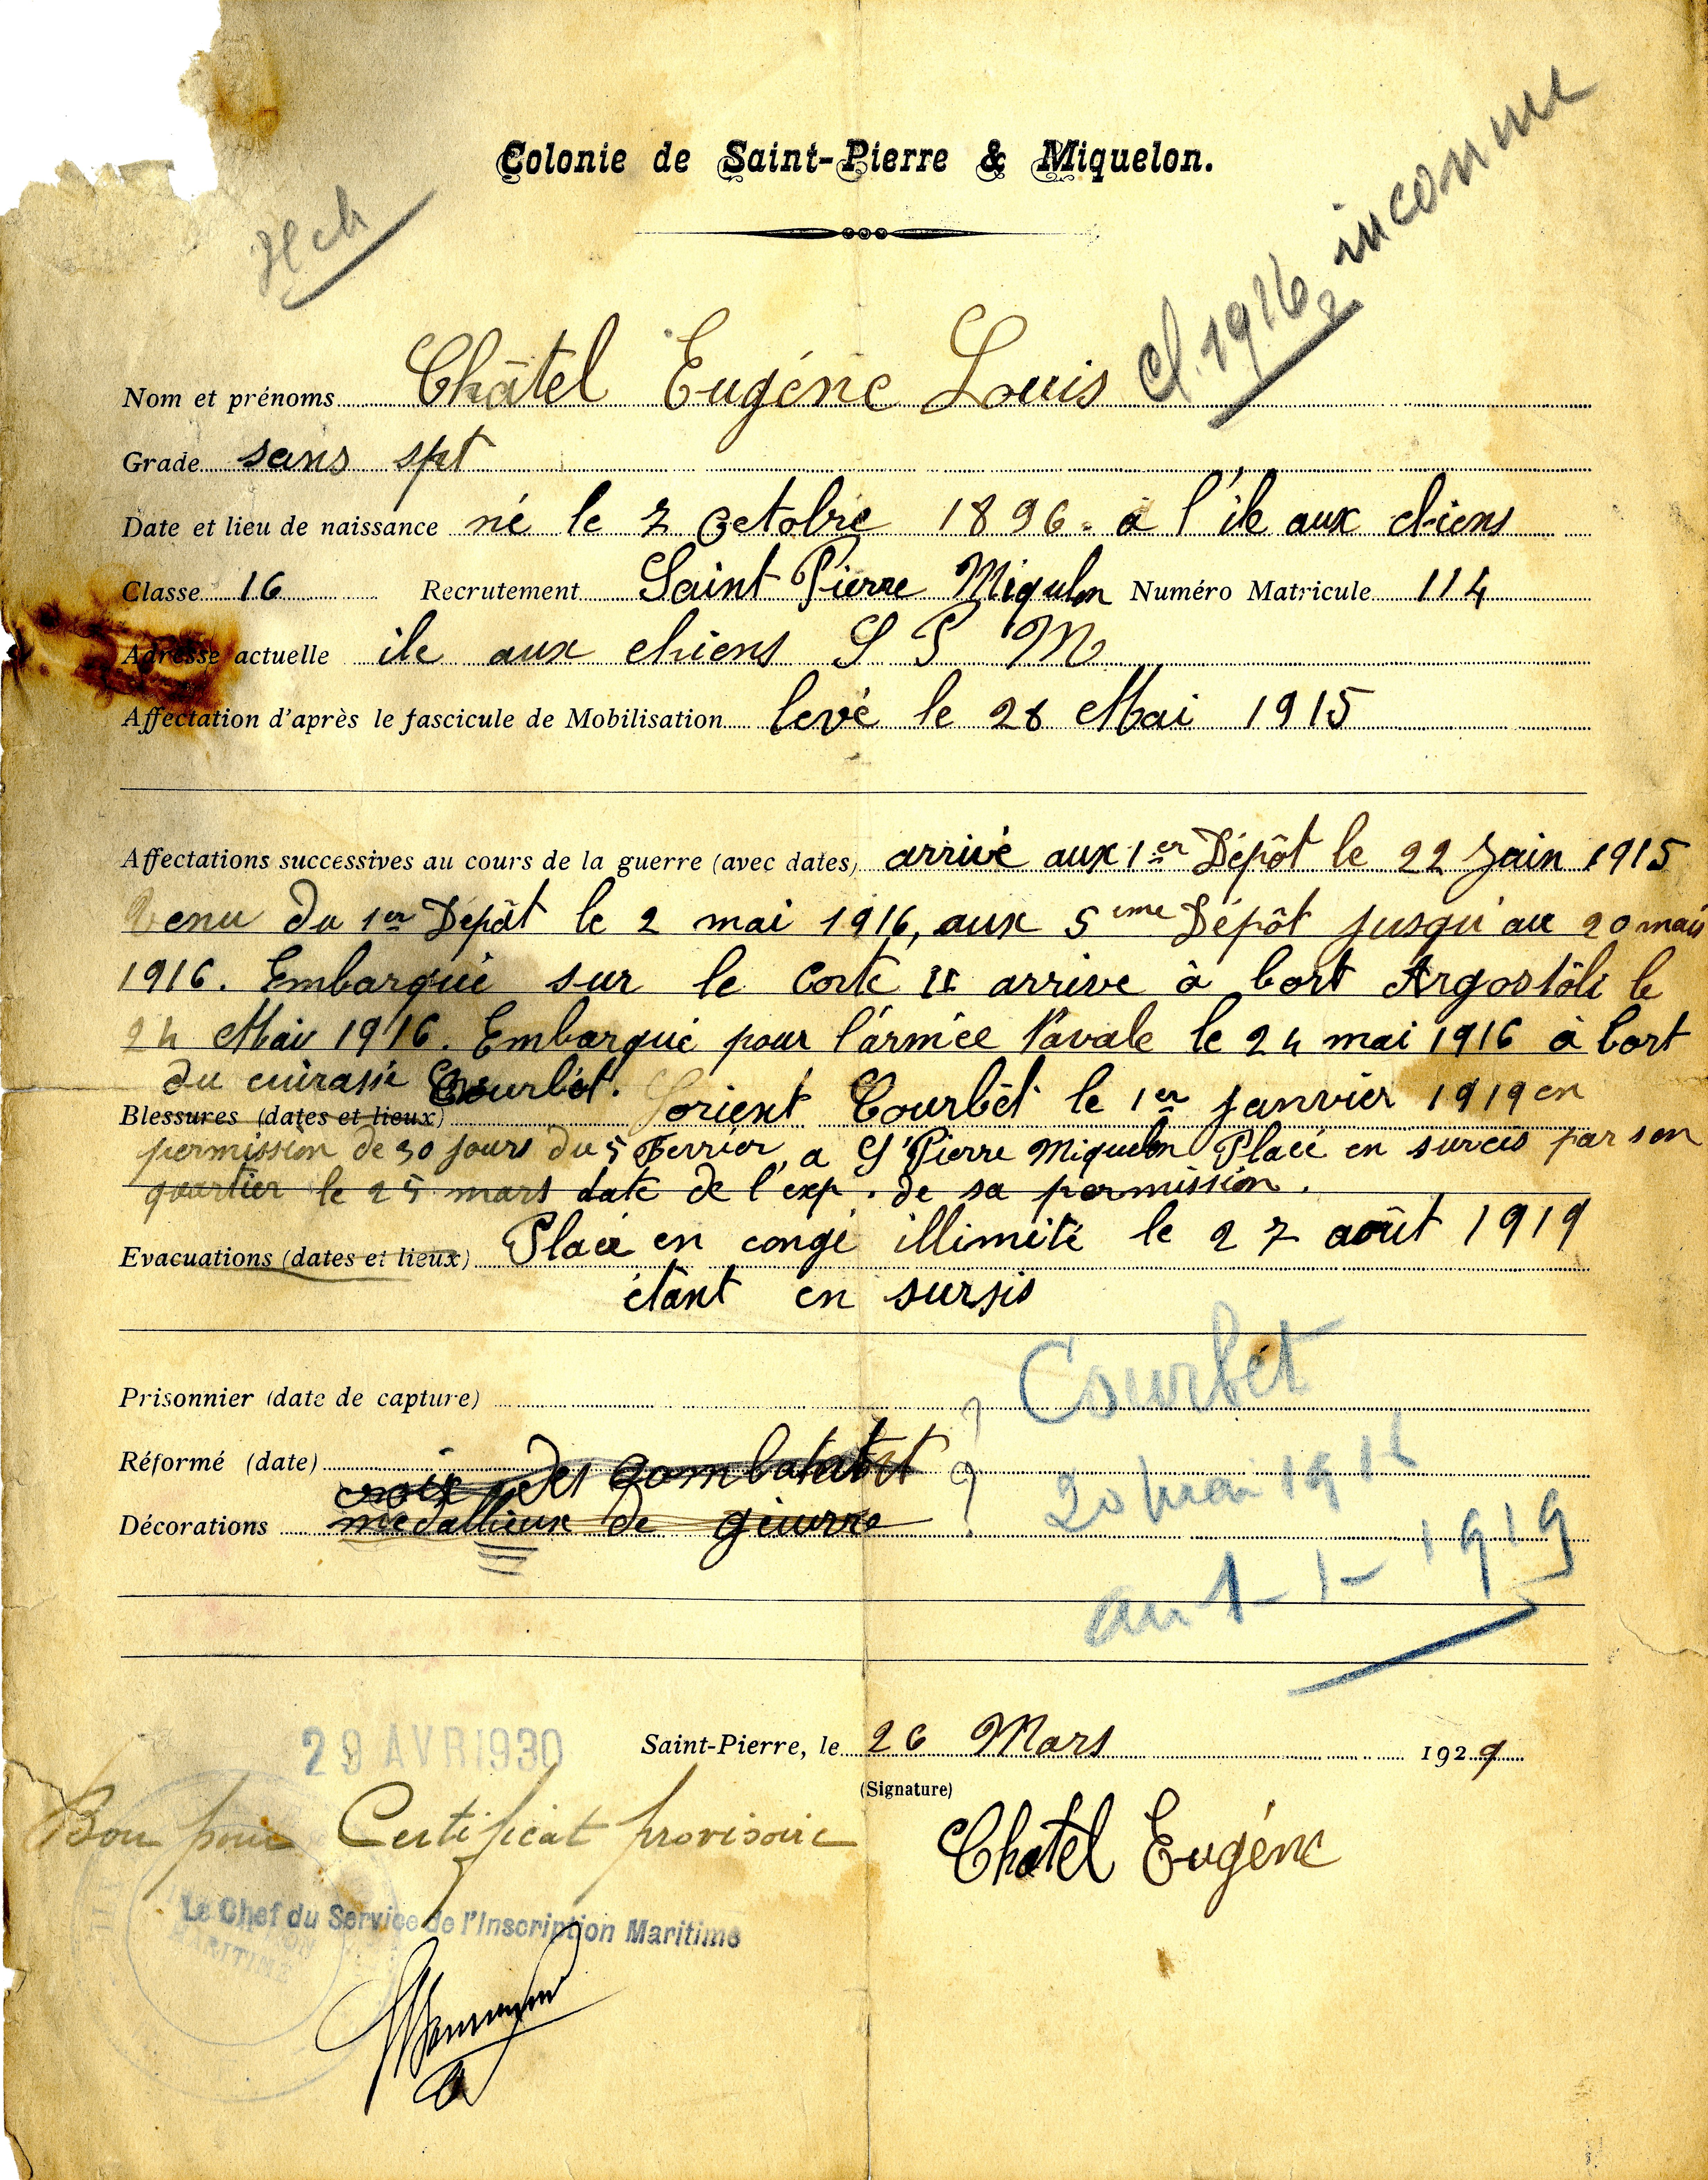 Colonie de Saint-Pierre & Miquelon.
cl. 1916 inconnu
Nom et prénoms Châtel Eugéne Louis
Grade sans spt
Date et lieu de naissance né le 7 Octobre 1896 - a l'ile aux chiens
Classe 16 Recrutement Saint Pierre Miquelon Numéro Matricule 114
Adresse actuelle ile aux chiens S P M
Affectation d'après le fascicule de Mobilisation levé le 28 Mai 1915
Affectations successives au cours de la guerre (avec dates) arrivé aux 1er Dépôt le 22 Juin 1915
Venu du 1er Dépât le 2 mai 1916, aux 5ime Dépôt jusqu'au 20 mais
1916. Embarquié sur le Corte II arrive à bort Argostôli le
24 Mai 1916. Embarquié pour l'armée Navale le 24 mai 1916 à bort
du cuirasié Courbét.
Blessures (dates et lieux) Lorient Courbét le 1er janvier 1919 en
permission de 30 jours du 5 Ferrier, a St Pierre Miquelon Placé en surcis par son
quartier le 25 mars date de l'exp. de sa permission.
Evacuations (dates et lieux) Placé en congé illimité le 27 août 1919
étant en sursis
Prisonnier (date de capture)
Courbet
Réformé (date)
croix des combatabt
20 mai 1916
Décorations médallieux de geurre
au 1-1-1919
29 AVR 1930
Saint-Pierre, le 26 Mars 1929
(Signature)
Bon pour Certificat provisoire
Chatel Eugéne
Le Chef du Service de l'Inscription Maritime
MARITIME